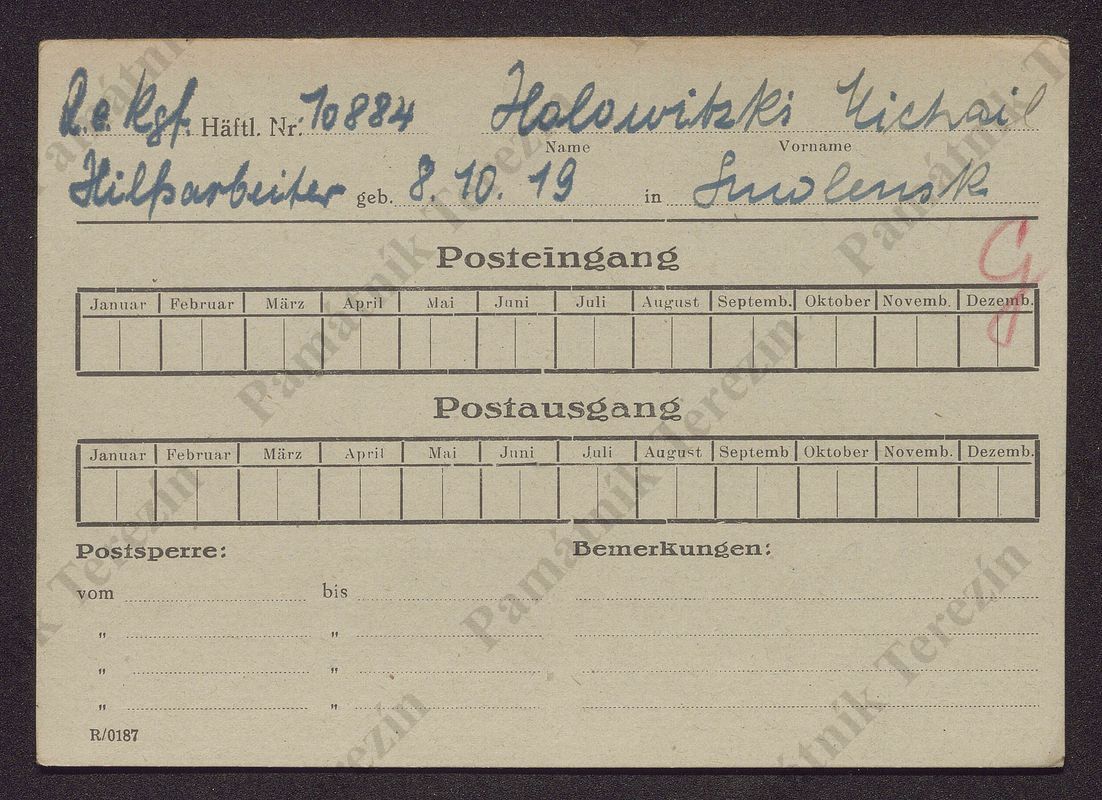 R.e. Kgf. Häftl. Nr. 10884 Holowitzki Michail
Name Vorname
Hilfsarbeiter geb. 8.10.19 in Smolensk
G
Posteingang
Januar Februar März April Mai Juni Juli August Septemb. Oktober Novemb. Dezemb.
Postausgang
Januar Februar März April Mai Juni Juli August Septemb Oktober Novemb. Dezemb.
Postsperre: Bemerkungen:
vom bis
" "
" "
" "
R/0187
Památník Terezín